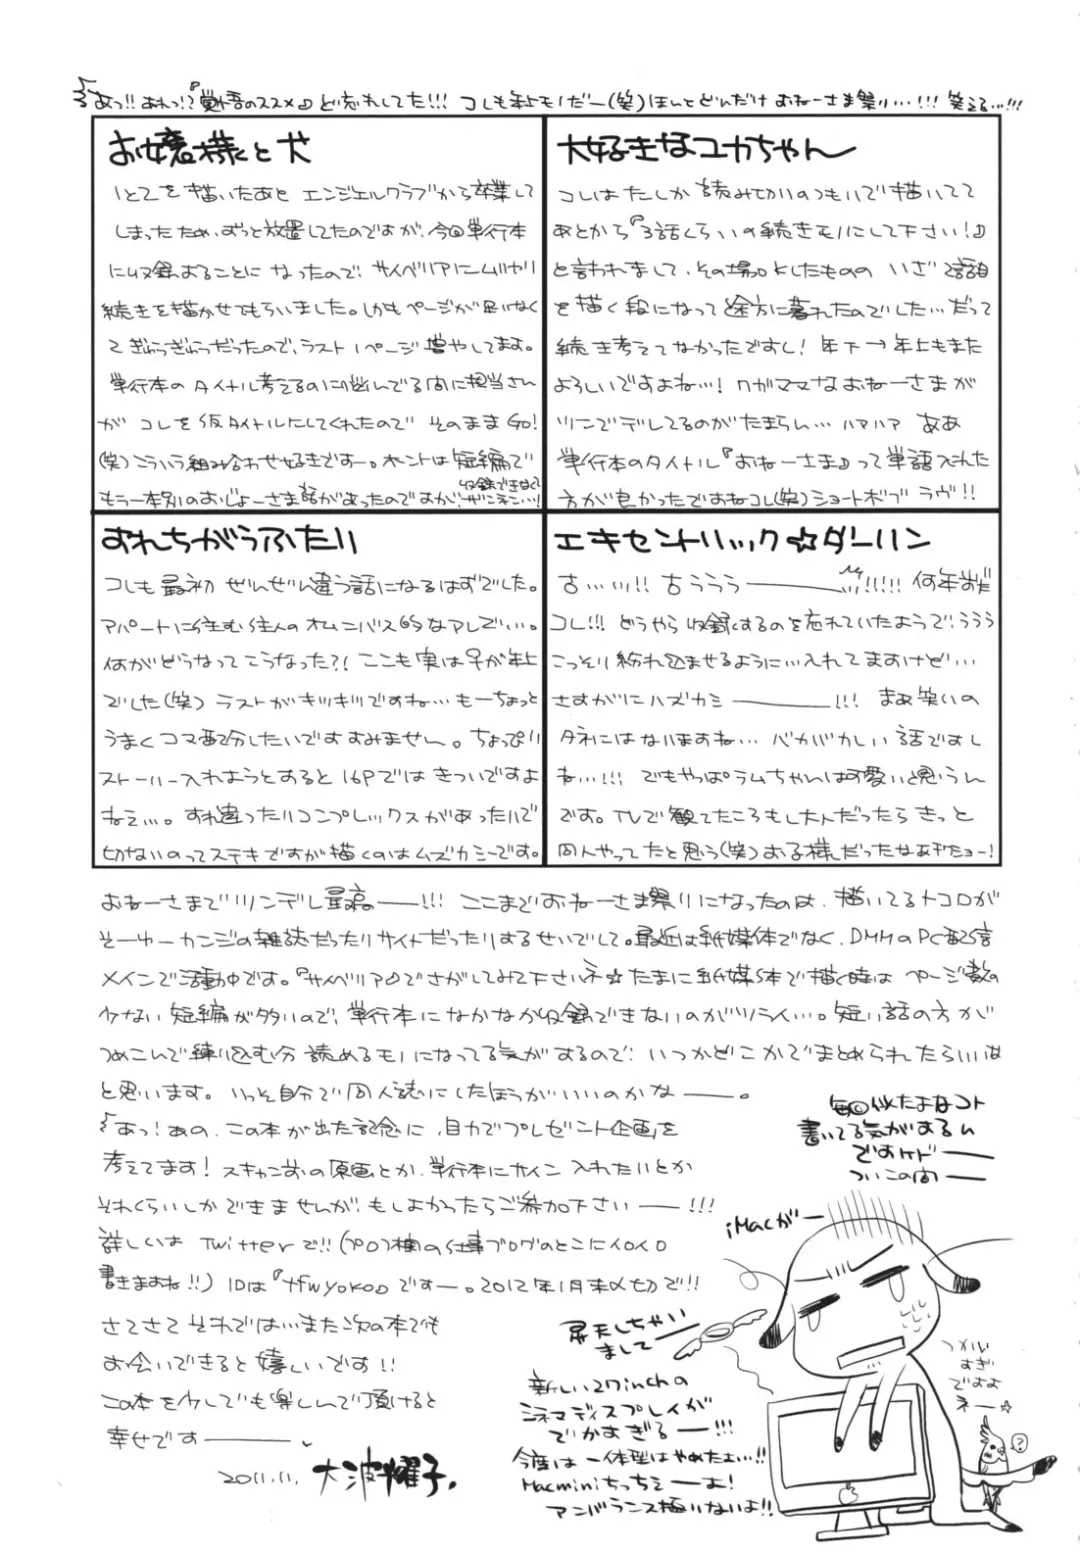 あっ!!あれっ!?『覚悟のススメ』ど忘れしてた!!! コレも年上モノだー(笑)ほんとどんだけおねーさま祭り…!!! 笑える…!!!
お嬢様と犬
1と2を描いたあと エンジェルクラブから卒業して
しまったため、ずっと放置してたのですが、今回単行本
に収録することになったので、サイベリアにムリヤリ
続きを描かせてもらいました。しかもページが足りなく
てぎゅうぎゅうだったので、ラスト1ページ増やしてます。
単行本のタイトル考えるのに悩んでる間に担当さん
が コレを仮タイトルにしてくれたので そのままGO!
(笑)こういう組み合わせ好きですー。ホントは短編で
もう一本別のおじょーさま話があったのですが、収録できなくてザンネン…!
大好きなユカちゃん
コレはたしか読み切りのつもりで描いてて
あとから『3話くらいの続きモノにして下さい!』
と言われまして、その場しのぎしたものの いざ2話目
を描く段になって途方に暮れたのでした…だって
続き考えてなかったですし! 年下→年上もまた
よろしいですよね…! ワガママなおねーさまが
ツンでデレしてるのがたまらん…ハァハァ ああ
単行本のタイトル『おねーさま』って単語入れた
方が良かったですねコレ(笑)ショートボブ ラヴ!!
すれちがうふたり
コレも最初 ぜんぜん違う話になるはずでした。
アパートに住む住人のオムニバス的なアレで…。
何がどうなってこうなった?! ここも実は子が年上
でした(笑) ラストがキツキツですね… もーちょっと
うまくコマ配分したいですすみません。ちょっぴり
ストーリー入れようとすると16Pではきついですよ
ねぇ…。すれ違ったりコンプレックスがあったりで
切ないのってステキですが描くのはムズカシーです。
エキセントリック☆ダーリン
古…ッ!! 古ううう———ッ!!!!! 何年前だ
コレ!!! どうやら収録するのを忘れていたようで、ううう
こっそり紛れ込ませるように…入れてますけど…
さすがにハズカシ———!!! まあ笑いの
タネにはなりますね… バカバカしい話ですし
ね…!!! でもやっぱラムちゃんは可愛いと思うん
です。TVで観てたころもしたんだったらきっと
同人やってたと思う(笑)お子様だったなあぢだョー!
おねーさまでツンデレ最高——!!! ここまでおねーさま祭りになったのは、描いてるトコロが
そーゆーカンジの雑誌だったりサイトだったりするせいでして。最近は紙媒体でなく、DMMのPC配信
メインで活動中です。『サイベリア』でさがしてみて下さいネ☆たまに紙媒体で描く時は ページ数の
少ない短編が多いので、単行本になかなか収録できないのがツライ…。短い話の方が
つめこんで練り込む分 読めるモノになってる気がするので、いつかどこかでまとめられたらいいな
と思います。いっそ自分で同人誌にしたほうがいいのかな——。
あっ!あの、この本が出た記念に、自力でプレゼント企画を
考えてます! スキャン前の原画とか、単行本にサイン入れたりとか
それくらいしかできませんが、もしよかったらご参加下さい——!!!
詳しくは Twitterで!!(プロフ欄の仕事ブログのとこにイロイロ
書きますね!!) IDは『tfwyoko』ですー。2012年1月末〆切で!!
さてさて それでは…また次の本でも
お会いできると嬉しいです!!
この本を少しでも楽しんで頂けると
幸せです———。
2011.11. 大波耀子。
毎回似たよなコト
書いてる気がするん
ですケド——
ついこの間——
iMacが——
昇天しちゃい
まして——
新しい27inchの
シネマディスプレイが
でかすぎる——!!!
今度は一体型はやめたよ…!!
Macminiちっちぇーよ!
アンバランス極りないよ!!
つかい
すぎ
ですよ
ネー☆
?